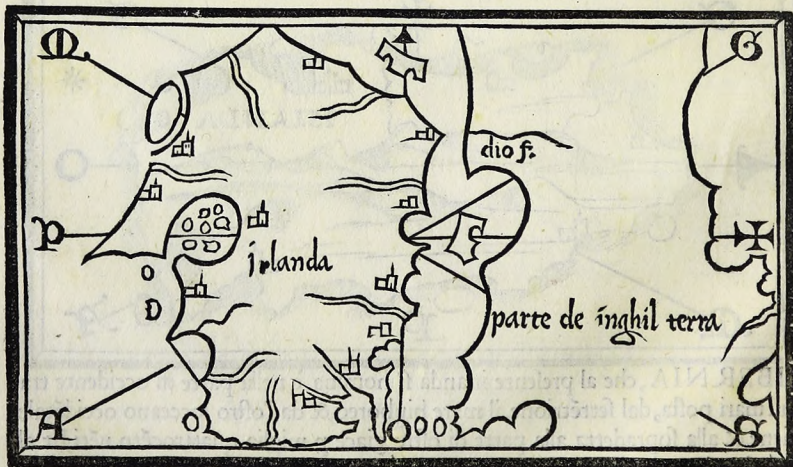 M
G
dio f.
P
irlanda
D
parte de inghil terra
A
S